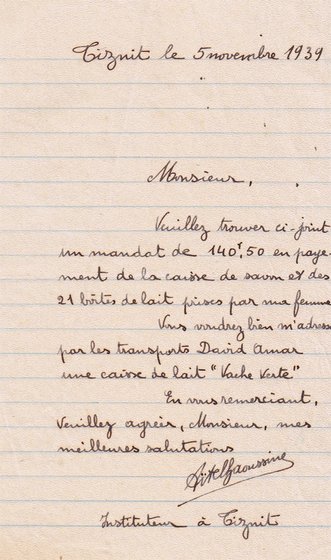 Tiznit le 5 novembre 1939
Monsieur,
Veuillez trouver ci-joint
un mandat de 140f,50 en paye-
ment de la caisse de savon et des
21 boîtes de lait prises par ma femme
Vous voudrez bien m'adress
par les transports David Amar
une caisse de lait "Vache Verte"
En vous remerciant,
Veuillez agréer, Monsieur, mes
meilleures salutations
Instituteur à Tiznit